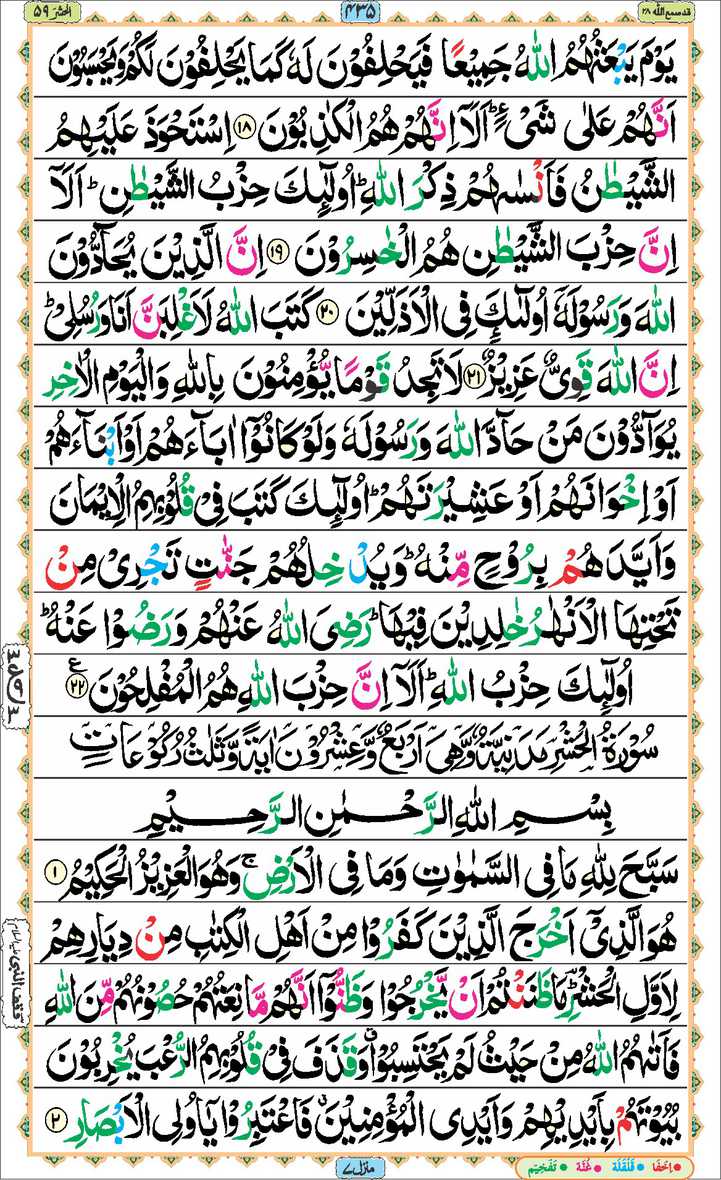 قد سمع الله ۲۸
۴۳۵
الحشر ۵۹
یَوْمَ یَبْعَثُهُمُ اللّٰهُ جَمِیْعًا فَیَحْلِفُوْنَ لَهٗ كَمَا یَحْلِفُوْنَ لَكُمْ وَیَحْسَبُوْنَ
اَنَّهُمْ عَلٰی شَیْءٍ ؕ اَلَاۤ اِنَّهُمْ هُمُ الْكٰذِبُوْنَ ۱۸ اِسْتَحْوَذَ عَلَیْهِمُ
الشَّیْطٰنُ فَاَنْسٰىهُمْ ذِكْرَ اللّٰهِ ؕ اُولٰٓئِكَ حِزْبُ الشَّیْطٰنِ ؕ اَلَاۤ
اِنَّ حِزْبَ الشَّیْطٰنِ هُمُ الْخٰسِرُوْنَ ۱۹ اِنَّ الَّذِیْنَ یُحَآدُّوْنَ
اللّٰهَ وَرَسُوْلَهٗۤ اُولٰٓئِكَ فِی الْاَذَلِّیْنَ ۲۰ كَتَبَ اللّٰهُ لَاَغْلِبَنَّ اَنَا وَرُسُلِیْ ؕ
اِنَّ اللّٰهَ قَوِیٌّ عَزِیْزٌ ۲۱ لَا تَجِدُ قَوْمًا یُّؤْمِنُوْنَ بِاللّٰهِ وَالْیَوْمِ الْاٰخِرِ
یُوَآدُّوْنَ مَنْ حَآدَّ اللّٰهَ وَرَسُوْلَهٗ وَلَوْ كَانُوْۤا اٰبَآءَهُمْ اَوْ اَبْنَآءَهُمْ
اَوْ اِخْوَانَهُمْ اَوْ عَشِیْرَتَهُمْ ؕ اُولٰٓئِكَ كَتَبَ فِیْ قُلُوْبِهِمُ الْاِیْمَانَ
وَاَیَّدَهُمْ بِرُوْحٍ مِّنْهُ ؕ وَیُدْخِلُهُمْ جَنّٰتٍ تَجْرِیْ مِنْ
تَحْتِهَا الْاَنْهٰرُ خٰلِدِیْنَ فِیْهَا ؕ رَضِیَ اللّٰهُ عَنْهُمْ وَرَضُوْا عَنْهُ ؕ
اُولٰٓئِكَ حِزْبُ اللّٰهِ ؕ اَلَاۤ اِنَّ حِزْبَ اللّٰهِ هُمُ الْمُفْلِحُوْنَ ۲۲ ع
سُوْرَةُ الْحَشْرِ مَدَنِیَّةٌ وَّهِیَ اَرْبَعٌ وَّعِشْرُوْنَ اٰیَةً وَّثَلٰثُ رُكُوْعَاتٍ
بِسْمِ اللّٰهِ الرَّحْمٰنِ الرَّحِیْمِ
سَبَّحَ لِلّٰهِ مَا فِی السَّمٰوٰتِ وَمَا فِی الْاَرْضِ ۚ وَهُوَ الْعَزِیْزُ الْحَكِیْمُ ۱
هُوَ الَّذِیْۤ اَخْرَجَ الَّذِیْنَ كَفَرُوْا مِنْ اَهْلِ الْكِتٰبِ مِنْ دِیَارِهِمْ
لِاَوَّلِ الْحَشْرِ ؕ مَا ظَنَنْتُمْ اَنْ یَّخْرُجُوْا وَظَنُّوْۤا اَنَّهُمْ مَّانِعَتُهُمْ حُصُوْنُهُمْ مِّنَ اللّٰهِ
فَاَتٰىهُمُ اللّٰهُ مِنْ حَیْثُ لَمْ یَحْتَسِبُوْا ۗ وَقَذَفَ فِیْ قُلُوْبِهِمُ الرُّعْبَ یُخْرِبُوْنَ
بُیُوْتَهُمْ بِاَیْدِیْهِمْ وَاَیْدِی الْمُؤْمِنِیْنَ ۗ فَاعْتَبِرُوْا یٰۤاُولِی الْاَبْصَارِ ۲
منزل ۷
اِخفَا • قَلقَلَة • غُنَّة • تَفخِیم •